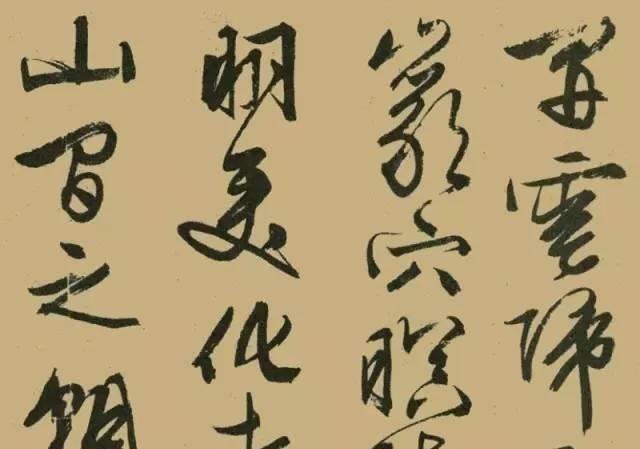 開雲歸
巖穴暝
明變化者
山間之朝